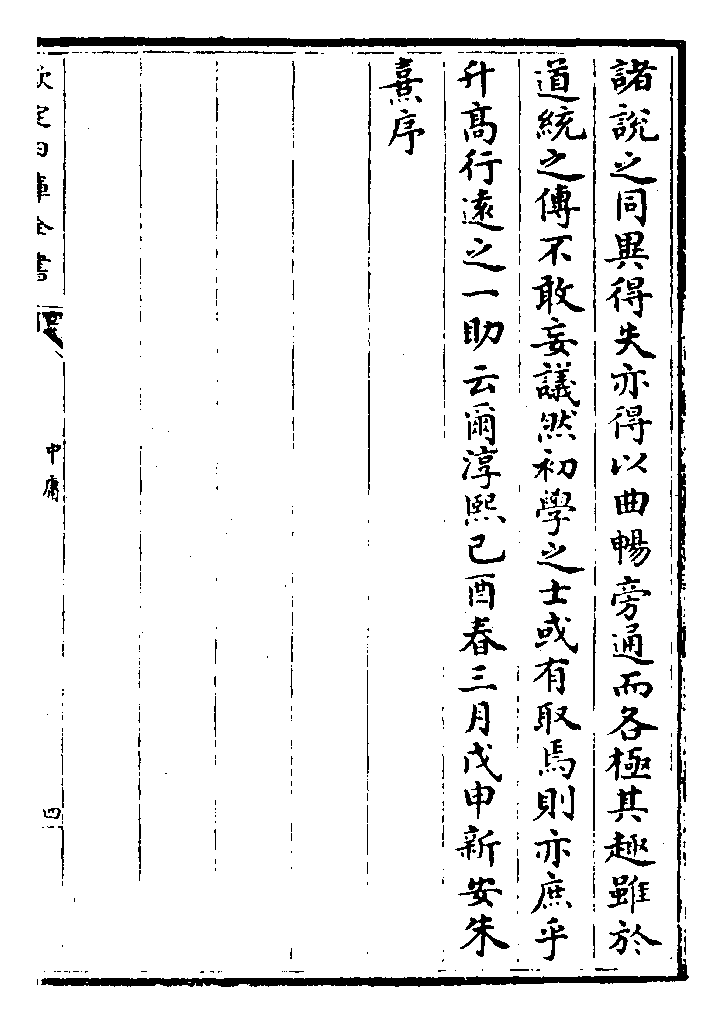 諸說之同異得失亦得以曲暢旁通而各極其趣雖於
道統之傳不敢妄議然初學之士或有取焉則亦庶乎
升高行遠之一助云爾淳熙己酉春三月戊申新安朱
熹序
欽定四庫全書
中庸
四